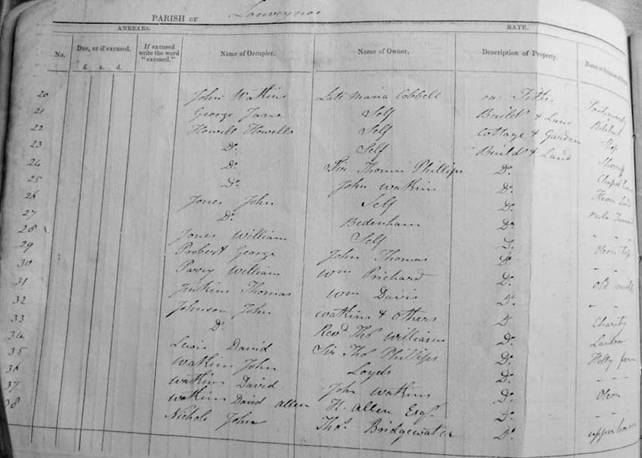 PARISH OF Llanveynoe
ARREARS. RATE.
No. Due, or if excused. If excused write the word "excused." Name of Occupier. Name of Owner. Description of Property.
£ s. d.
20 John Watkins Late Maria Cobbell on Tithe
21 George Jane Self Build^s & Land
22 Howell Howells Self Cottage & Garden
23 D^o. Self Build^s & Land
24 D^o. Sir Thomas Phillips D^o.
25 D^o. John Watkins D^o.
26 Jones John Self D^o.
27 D^o. Bedenham D^o.
28 Jones William Self D^o.
29 Probert George John Thomas D^o.
30 Parry William W^m Prichard D^o.
31 Jenkins Thomas W^m Davis D^o.
32 Johnson John Watkins & Others D^o. Charity
33 D^o. Rev^d Tho^s Williams D^o.
34 Lewis David Sir Tho^s Phillips D^o.
35 Watkins John Loyds D^o.
36 Watkins David John Watkins D^o.
37 Watkins David Allen H. Allen Esq^r. D^o.
38 Nichols John Tho^s. Bridgewater D^o.